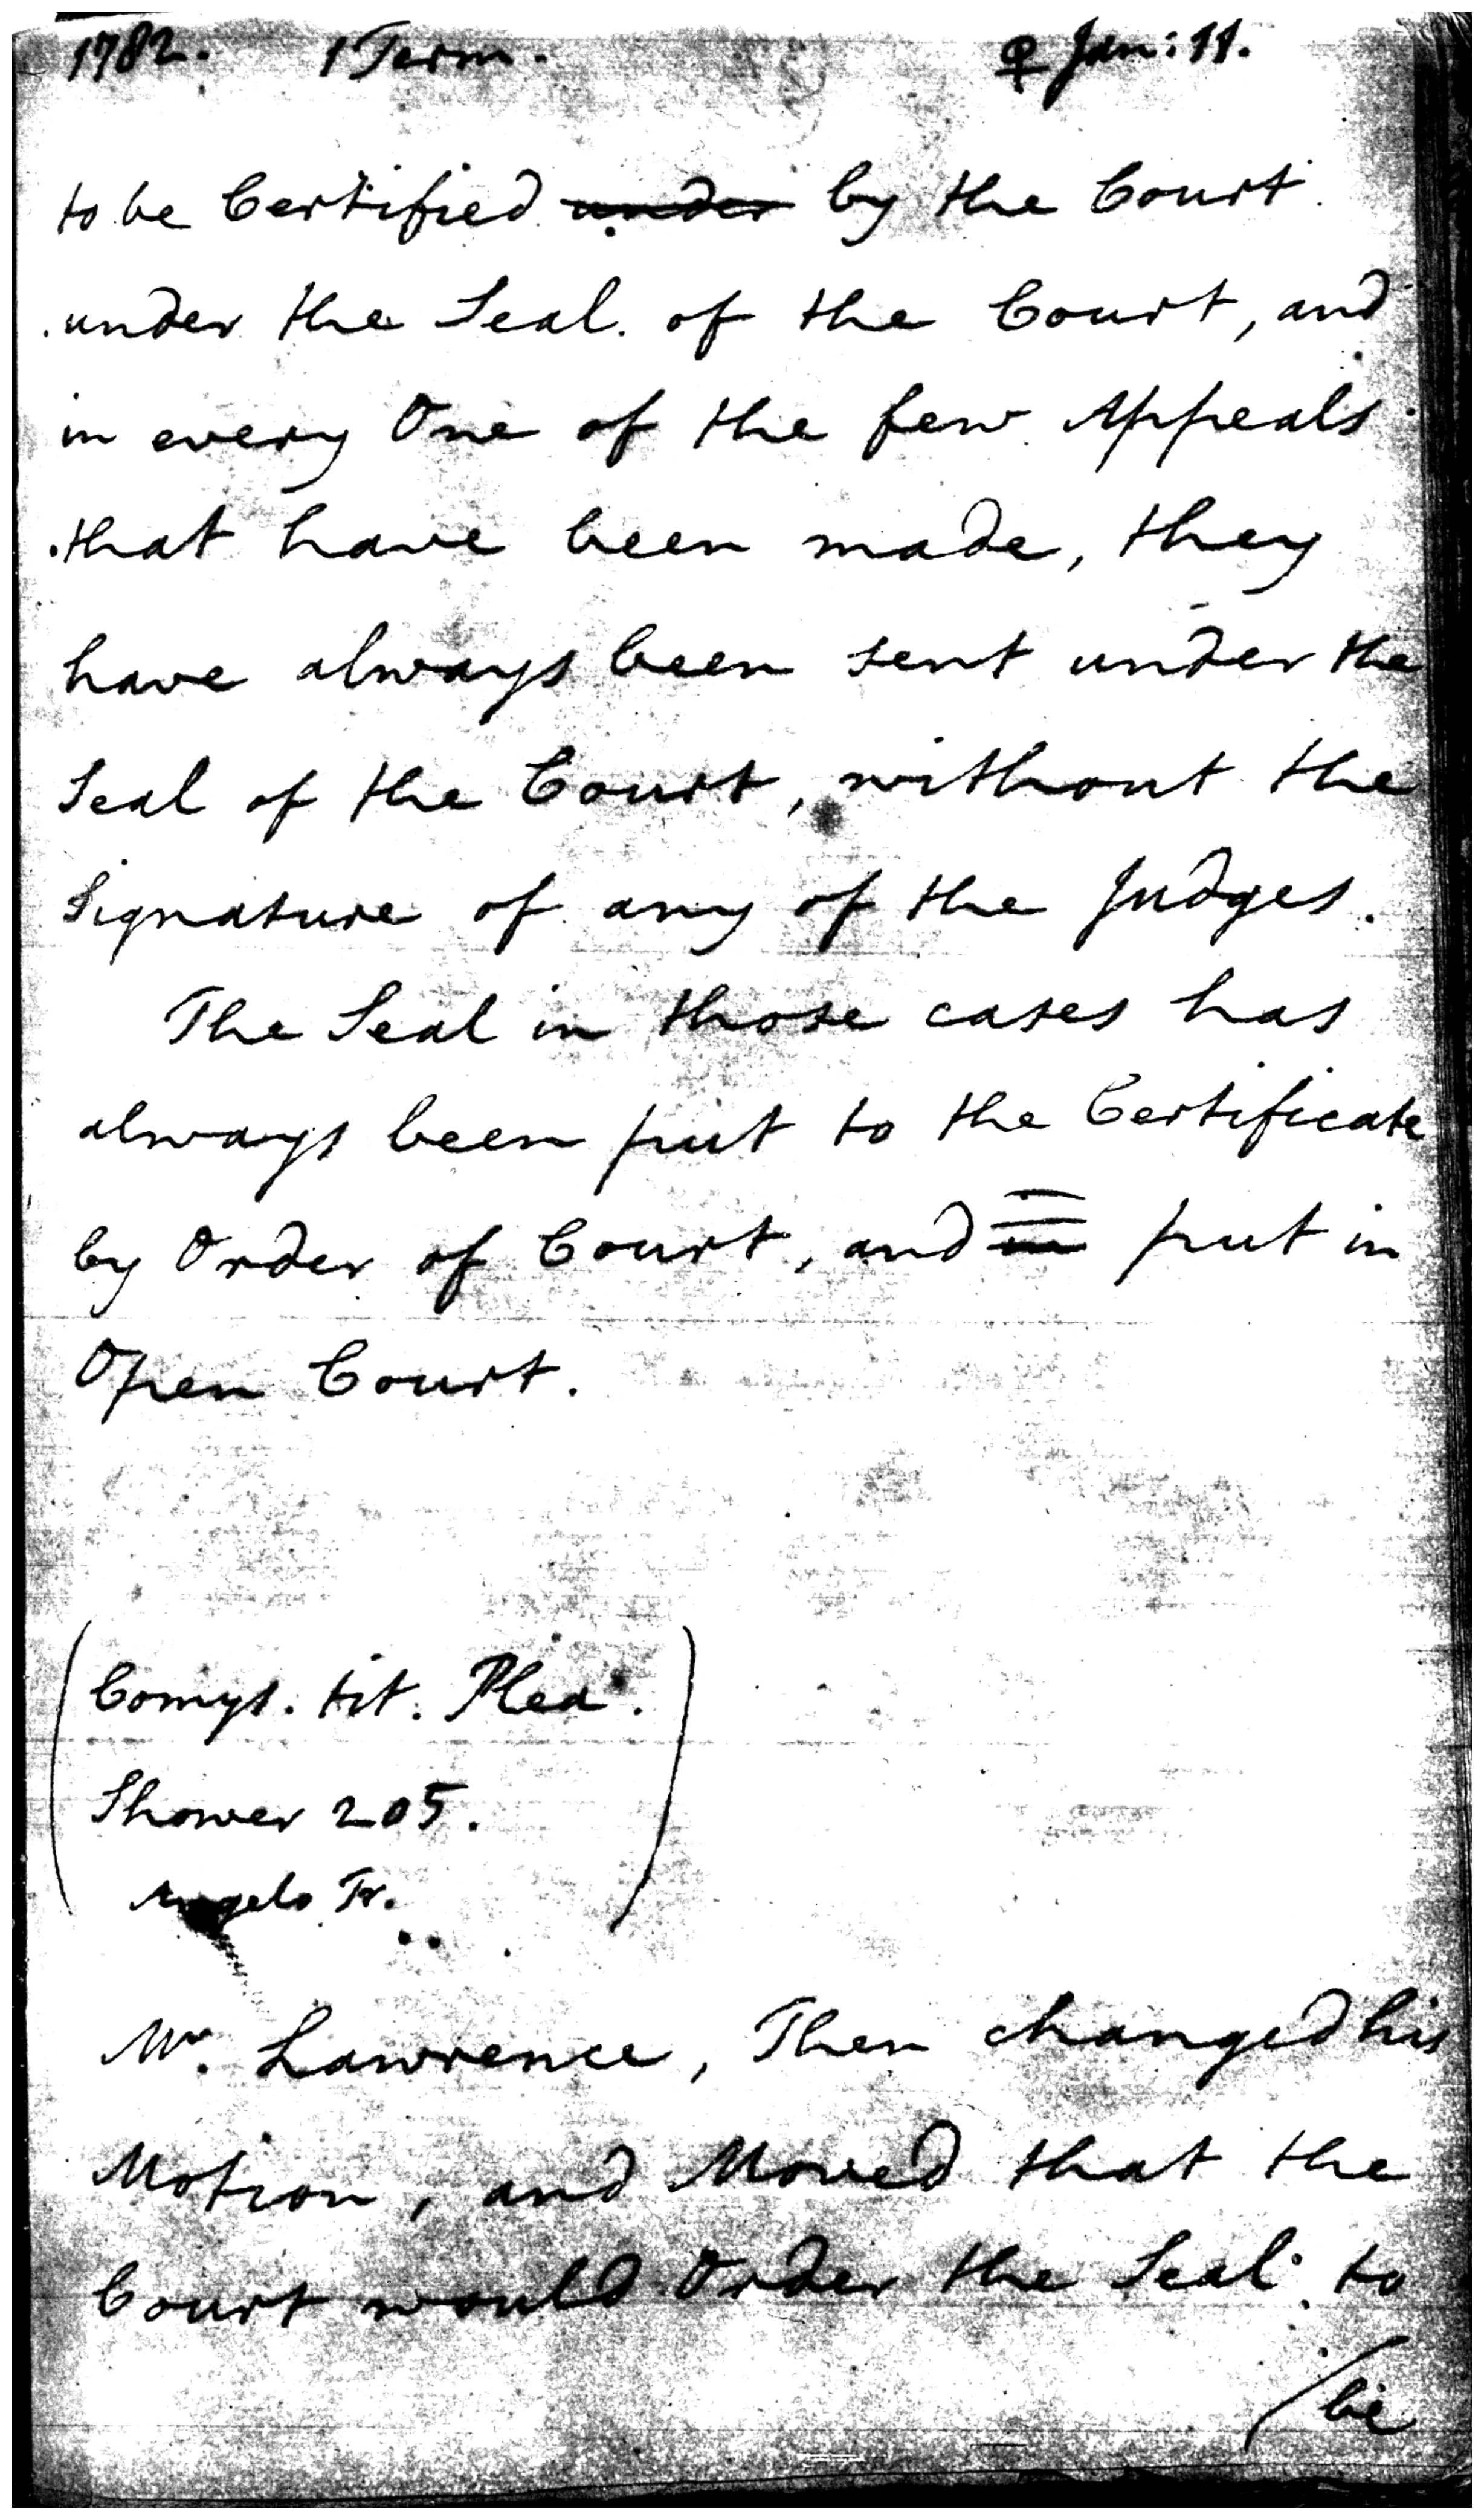 1782. 1 Term. ♀ Jan: 11.
to be Certified under by the Court
under the Seal of the Court, and
in every One of the few Appeals
that have been made, they
have always been sent under the
Seal of the Court, without the
Signature of any of the Judges.
The Seal in those cases has
always been put to the Certificate
by Order of Court, and in put in
Open Court.
Comys. tit. Plea.
Shower 205.
Angelo Tr.
Mr. Lawrence, Then changed his
Motion, and Moved that the
Court would Order the Seal to
/be